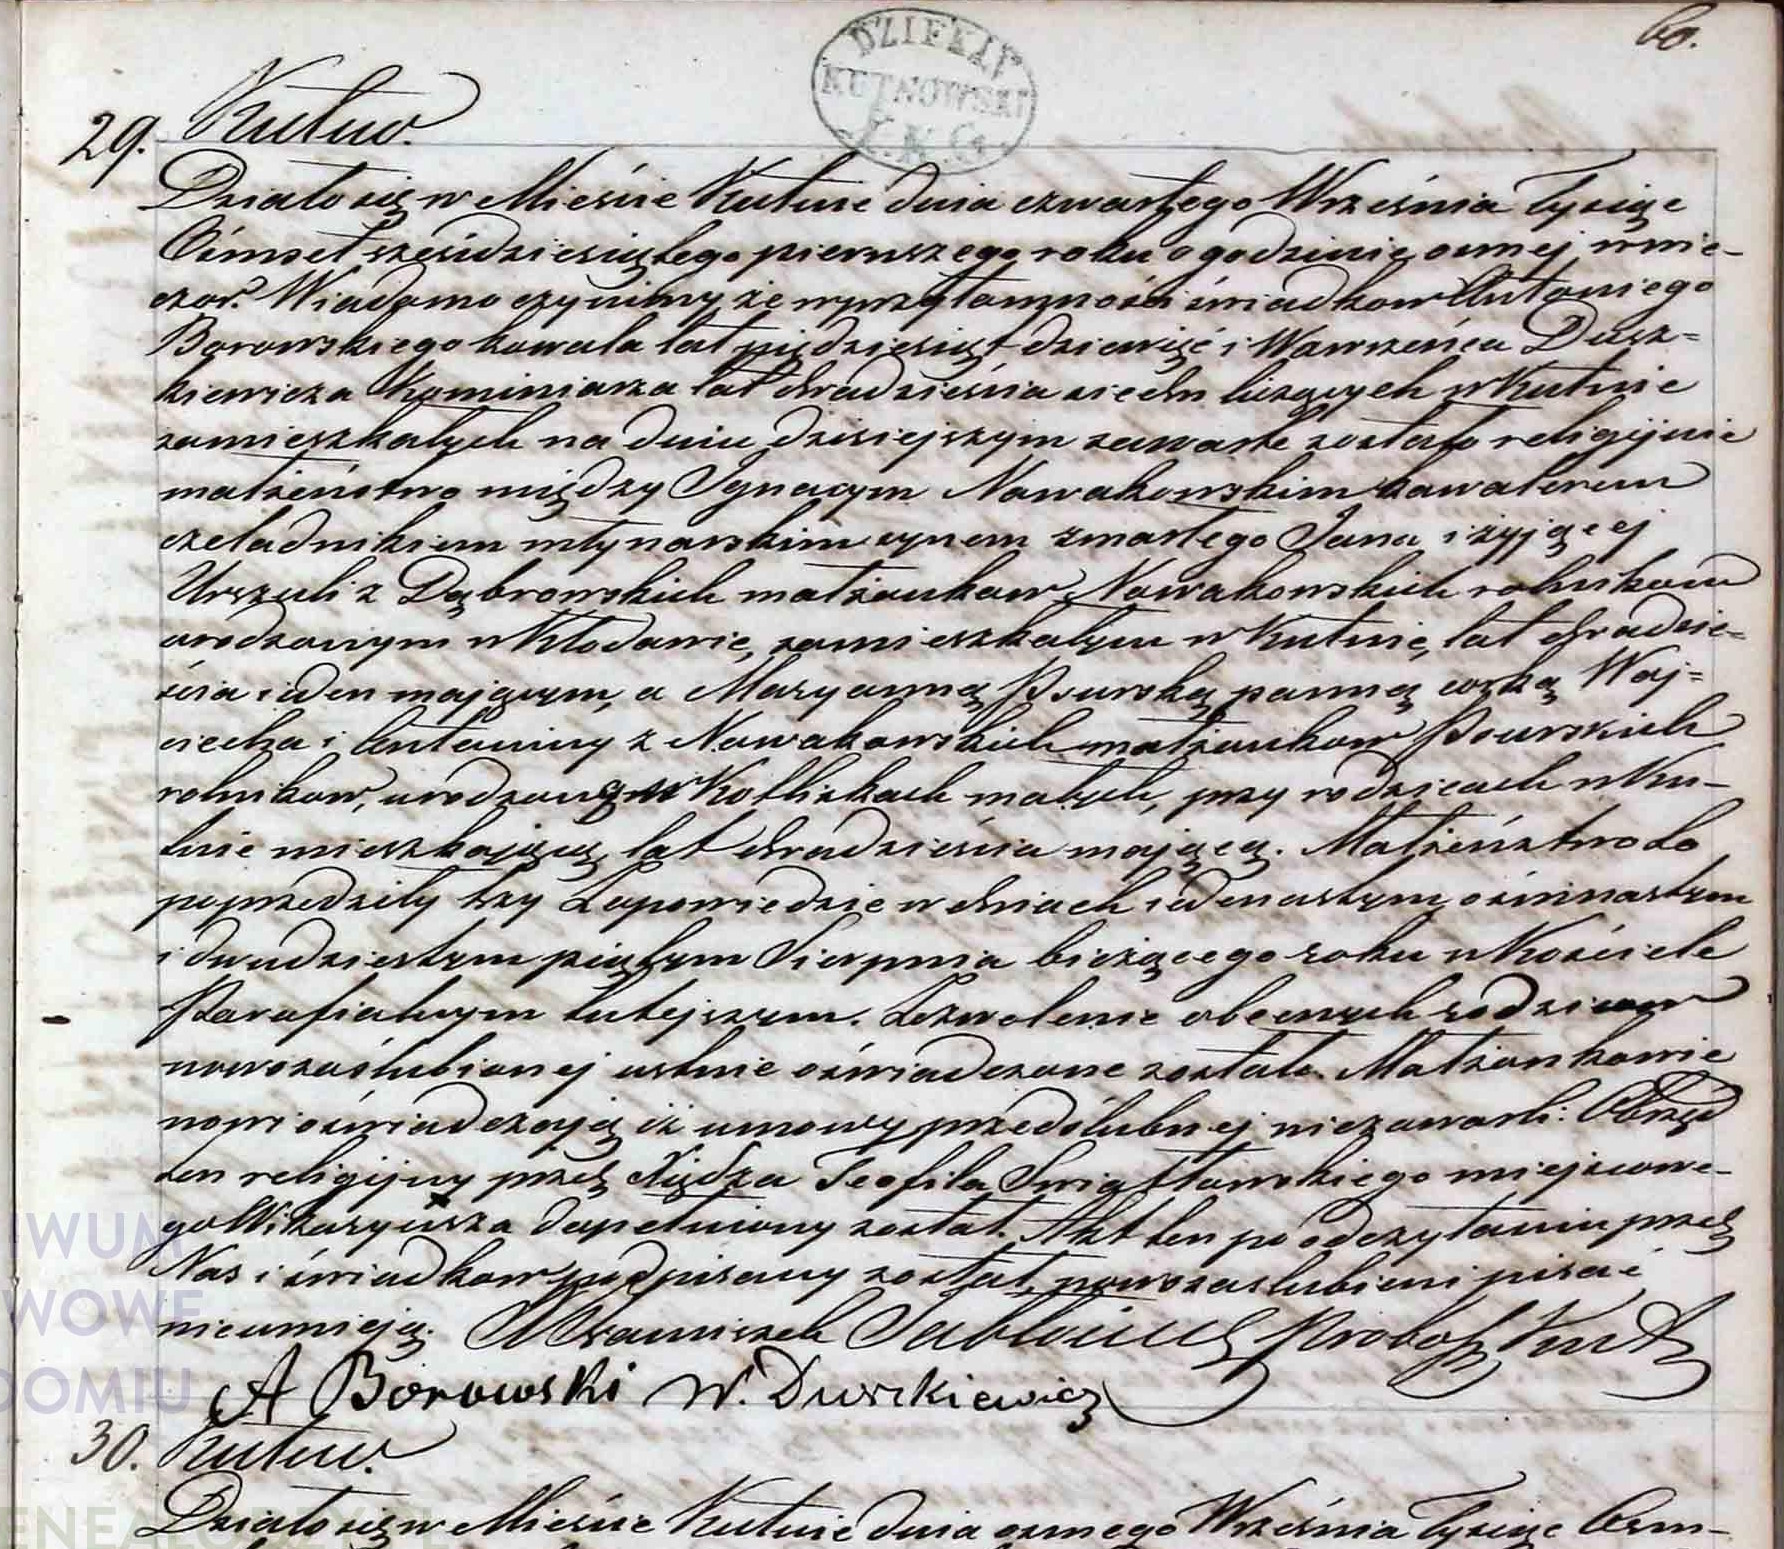 60.
DZIEKAN
KUTNOWSKI
29. Kutno.
Działo się w Mieście Kutnie dnia czwartego Września Tysiąc
Ośmset sześćdziesiątego pierwszego roku o godzinie osmej wwie-
czor. Wiadomo czynimy że wprzytomności świadkow Antoniego
Borowskiego kowala lat pięćdziesiąt dziewięć i Wawrzeńca Dusz=
kiewicza Kominiarza lat dwadzieścia siedm liczących w Kutnie
zamieszkałych na dniu dzisiejszym zawarte zostało religijnie
małżeństwo między Ignacym Nowakowskim kawalerem
czeladnikiem młynarskim synem zmarłego Jana i żyjącej
Urszuli z Dąbrowskich małżonkow Nowakowskich rolnikow
urodzonym w Kłodawie, zamieszkałym w Kutnie, lat dwadzie=
ścia ieden mającym, a Maryanną Psurską panną corką Woj=
ciecha i Antoniny z Nowakowskich małżonkow Psurskich
rolnikow, urodzoną w Kotliskach małych, przy rodzicach w Ku-
tnie mieszkającą, lat dwadzieścia mającą. Małżeństwo to
poprzedziły trzy Zapowiedzie w dniach iedenastym, ośmnastym
i dwudziestym piątym Sierpnia bieżącego roku w Kościele
Parafialnym tutejszym. Zezwolenie obecnych rodzicow
nowozaślubionej ustnie oświadczone zostało. Małżonkowie
nowi oświadczają iż umowy przedślubnej niezawarli. Obrzęd
ten religijny przez Xiędza Teofila Swiątławskiego miejscowe-
go Wikaryusza dopełniony został. Akt ten po odczytaniu przez
Nas i świadkow podpisany został, nowozaslubieni pisać
nieumieją. X Franciszek Jabłoński Proboszcz Kut
A Borowski W. Duszkiewicz
30. Kutno.
Działo się w Mieście Kutnie dnia osmego Września Tysiąc Ośm-